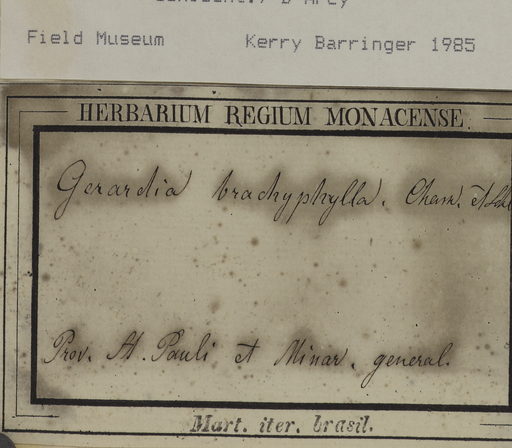 D'Arcy
Field Museum Kerry Barringer 1985
HERBARIUM REGIUM MONACENSE.
Gerardia brachyphylla. Cham. et
Prov. St. Pauli et Minar. general.
Mart. iter. brasil.